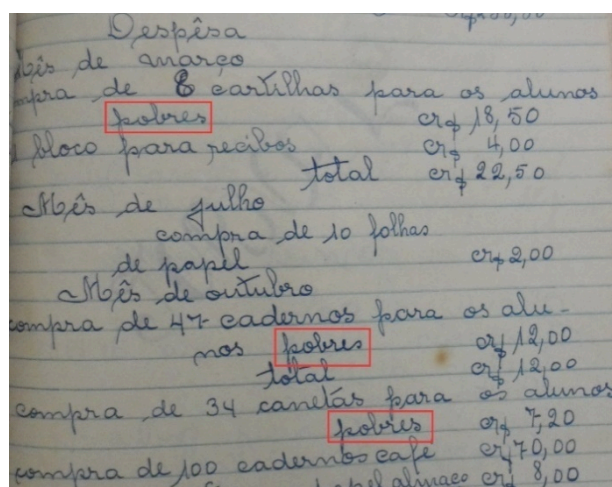 Despêsa
Mês de março
mpra de 8 cartilhas para os alunos
pobres cr$ 18,50
bloco para recibos cr$ 4,00
total cr$ 22,50
Mês de julho
compra de 10 folhas
de papel cr$ 2,00
Mês de outubro
compra de 47 cadernos para os alu-
nos pobres cr$ 12,00
total cr$ 12,00
compra de 34 canetas para os alunos
pobres cr$ 7,20
compra de 100 cadernos café cr$ 70,00
papel almaco cr$ 8,00